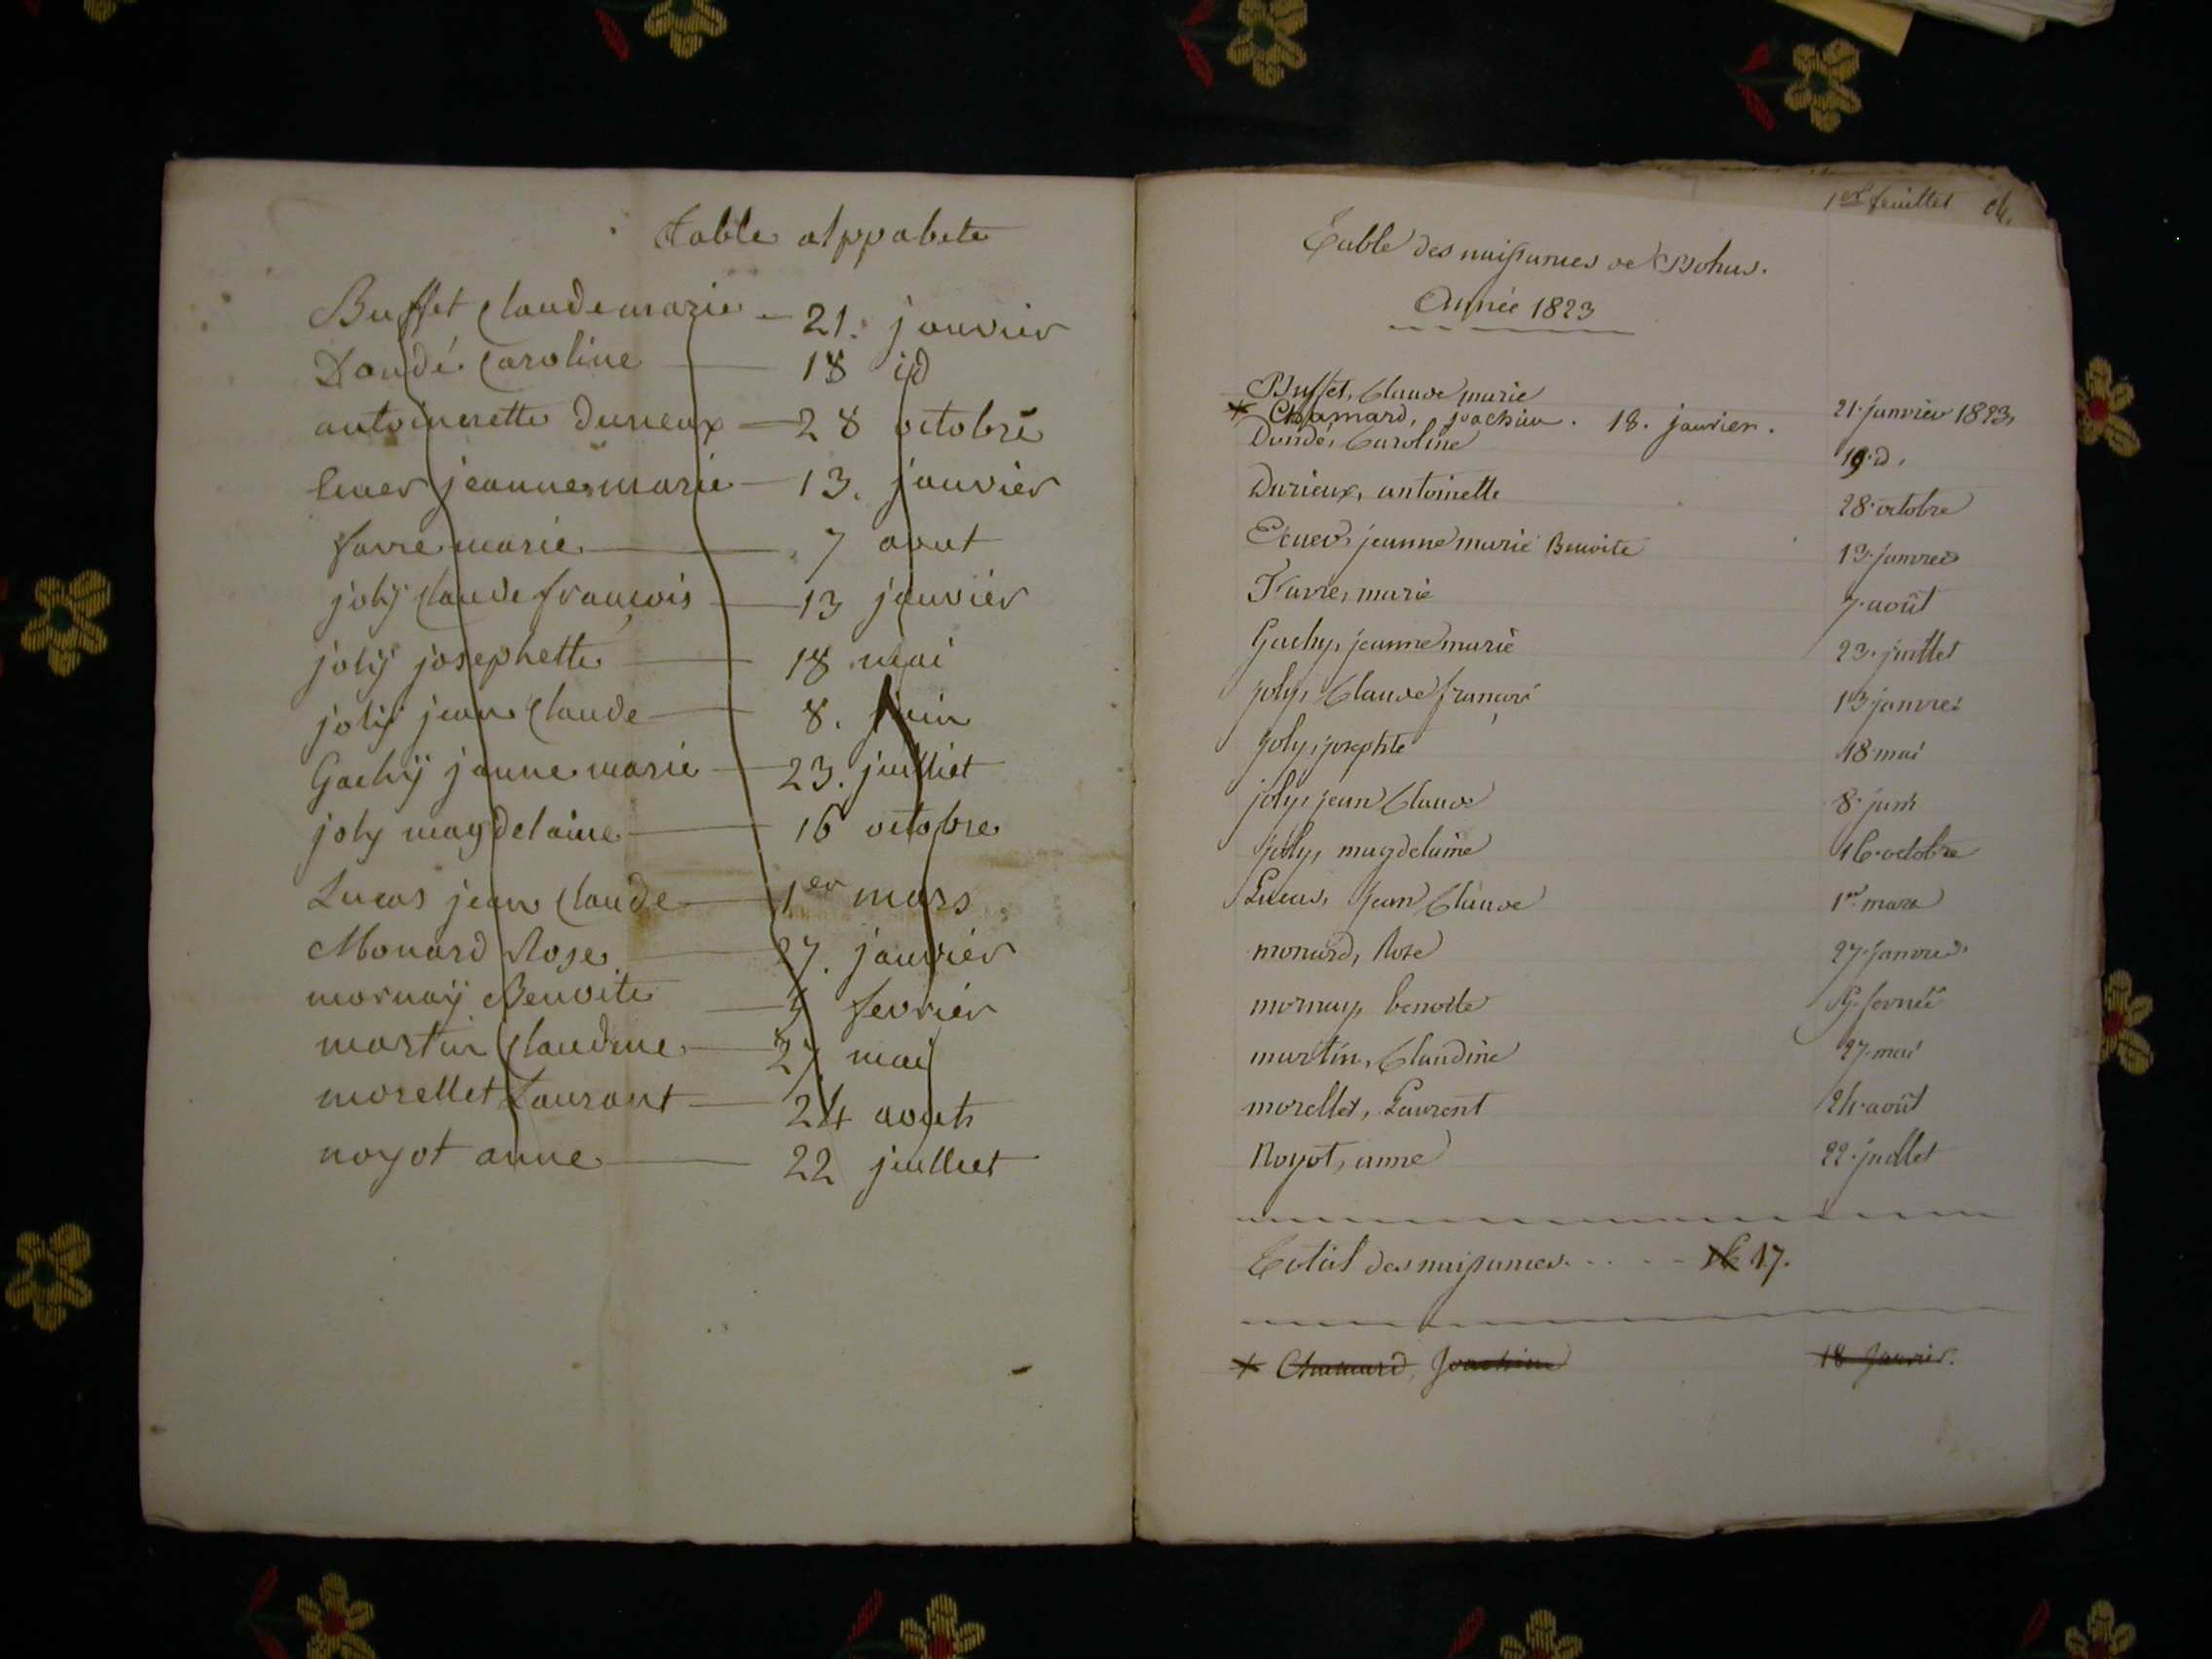 table alppabete
Buffet Claude marie - 21. janvier
Dondé Caroline 18 id
antoinnette Durieux 28 octobre
Ecuer jeanne marie 13. janvier
favre marie 7 aout
jolÿ Claude françois 13 janvier
jolÿ josephette 18 mai
jolÿ jean Claude 8. juin
Gachÿ janne marie 23. juilliet
joly magdelaine 16 octobre
Lucas jean Claude 1er mars
Monard Rose 27. janvier
mornaÿ Benoite 9 fevrier
martin Claudine 27 mai
morellet Laurant 24 aout
noyot anne 22 juilliet
1er feuillet
Table des naissances de Bohas.
Année 1823
Buffet, Claude marie 21. janvier 1823,
* Chamard, joachim. 18. janvier.
Dondé, Caroline 19. d.
Durieux, antoinette 28. octobre
Ecuer, jeanne marie Benoite 13. janvier
Favre, marie 7. août
Gachy, jeanne marie 23. juillet
joly, Claude françois 13 janvier
joly, josephte 18 mai
joly, jean Claude 8. juin
joly, magdelaine 16. octobre
Lucas, Jean Claude 1er mars
monard, Rose 27. janvier
mornay, benoite 9. fevrier
martin, Claudine 27. mai
morellet, Laurent 24. août
Noyot, anne 22. juillet
Total des naissances. . . . . 16 17.
* Chamard, Joachim 18 Janvier.